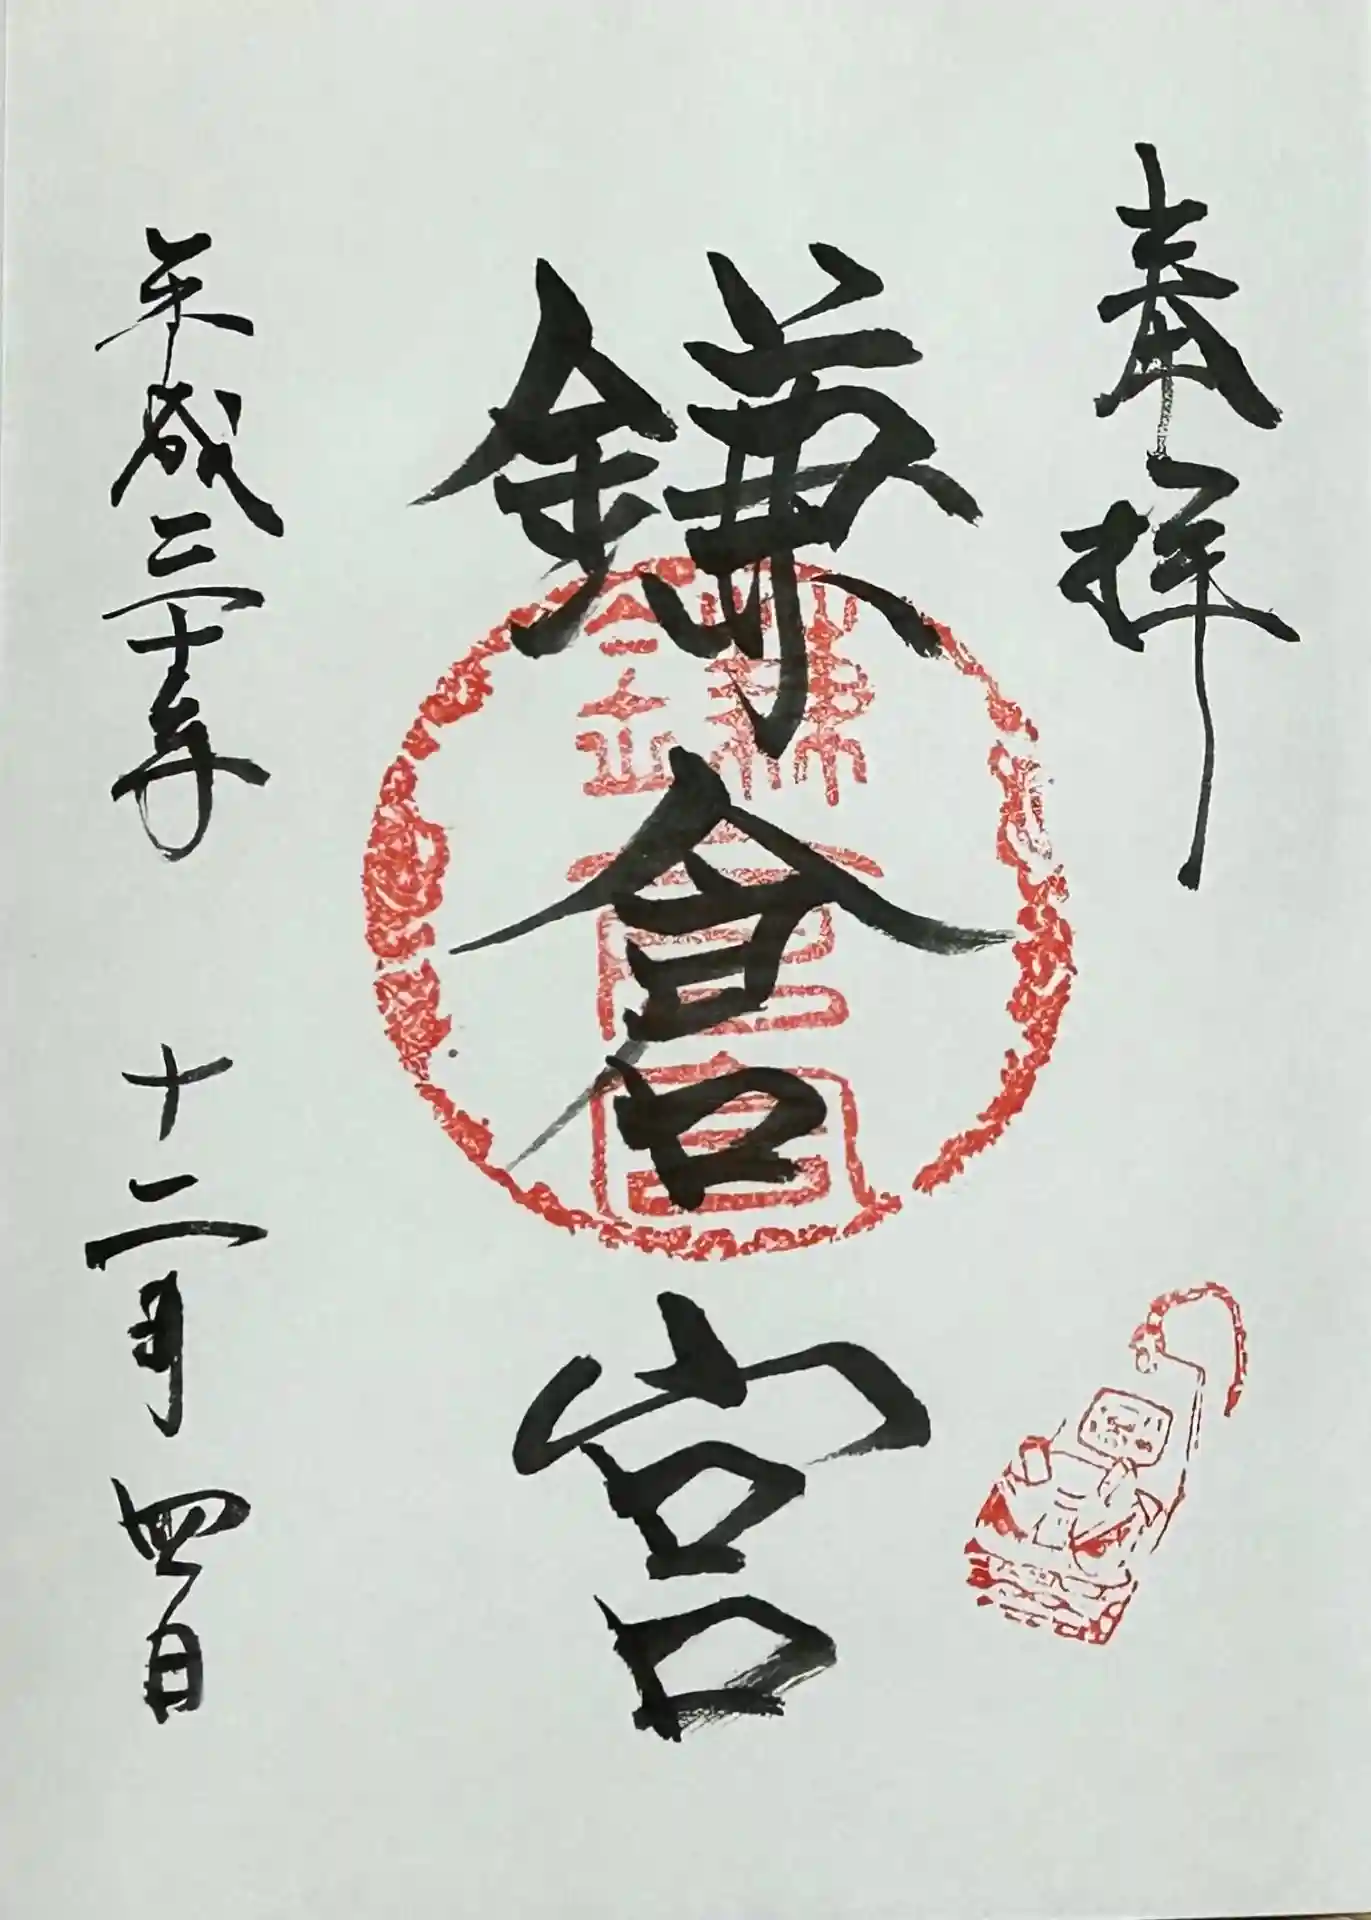 奉拝
鎌倉宮
鎌倉宮
平成三十年 十二月 四日